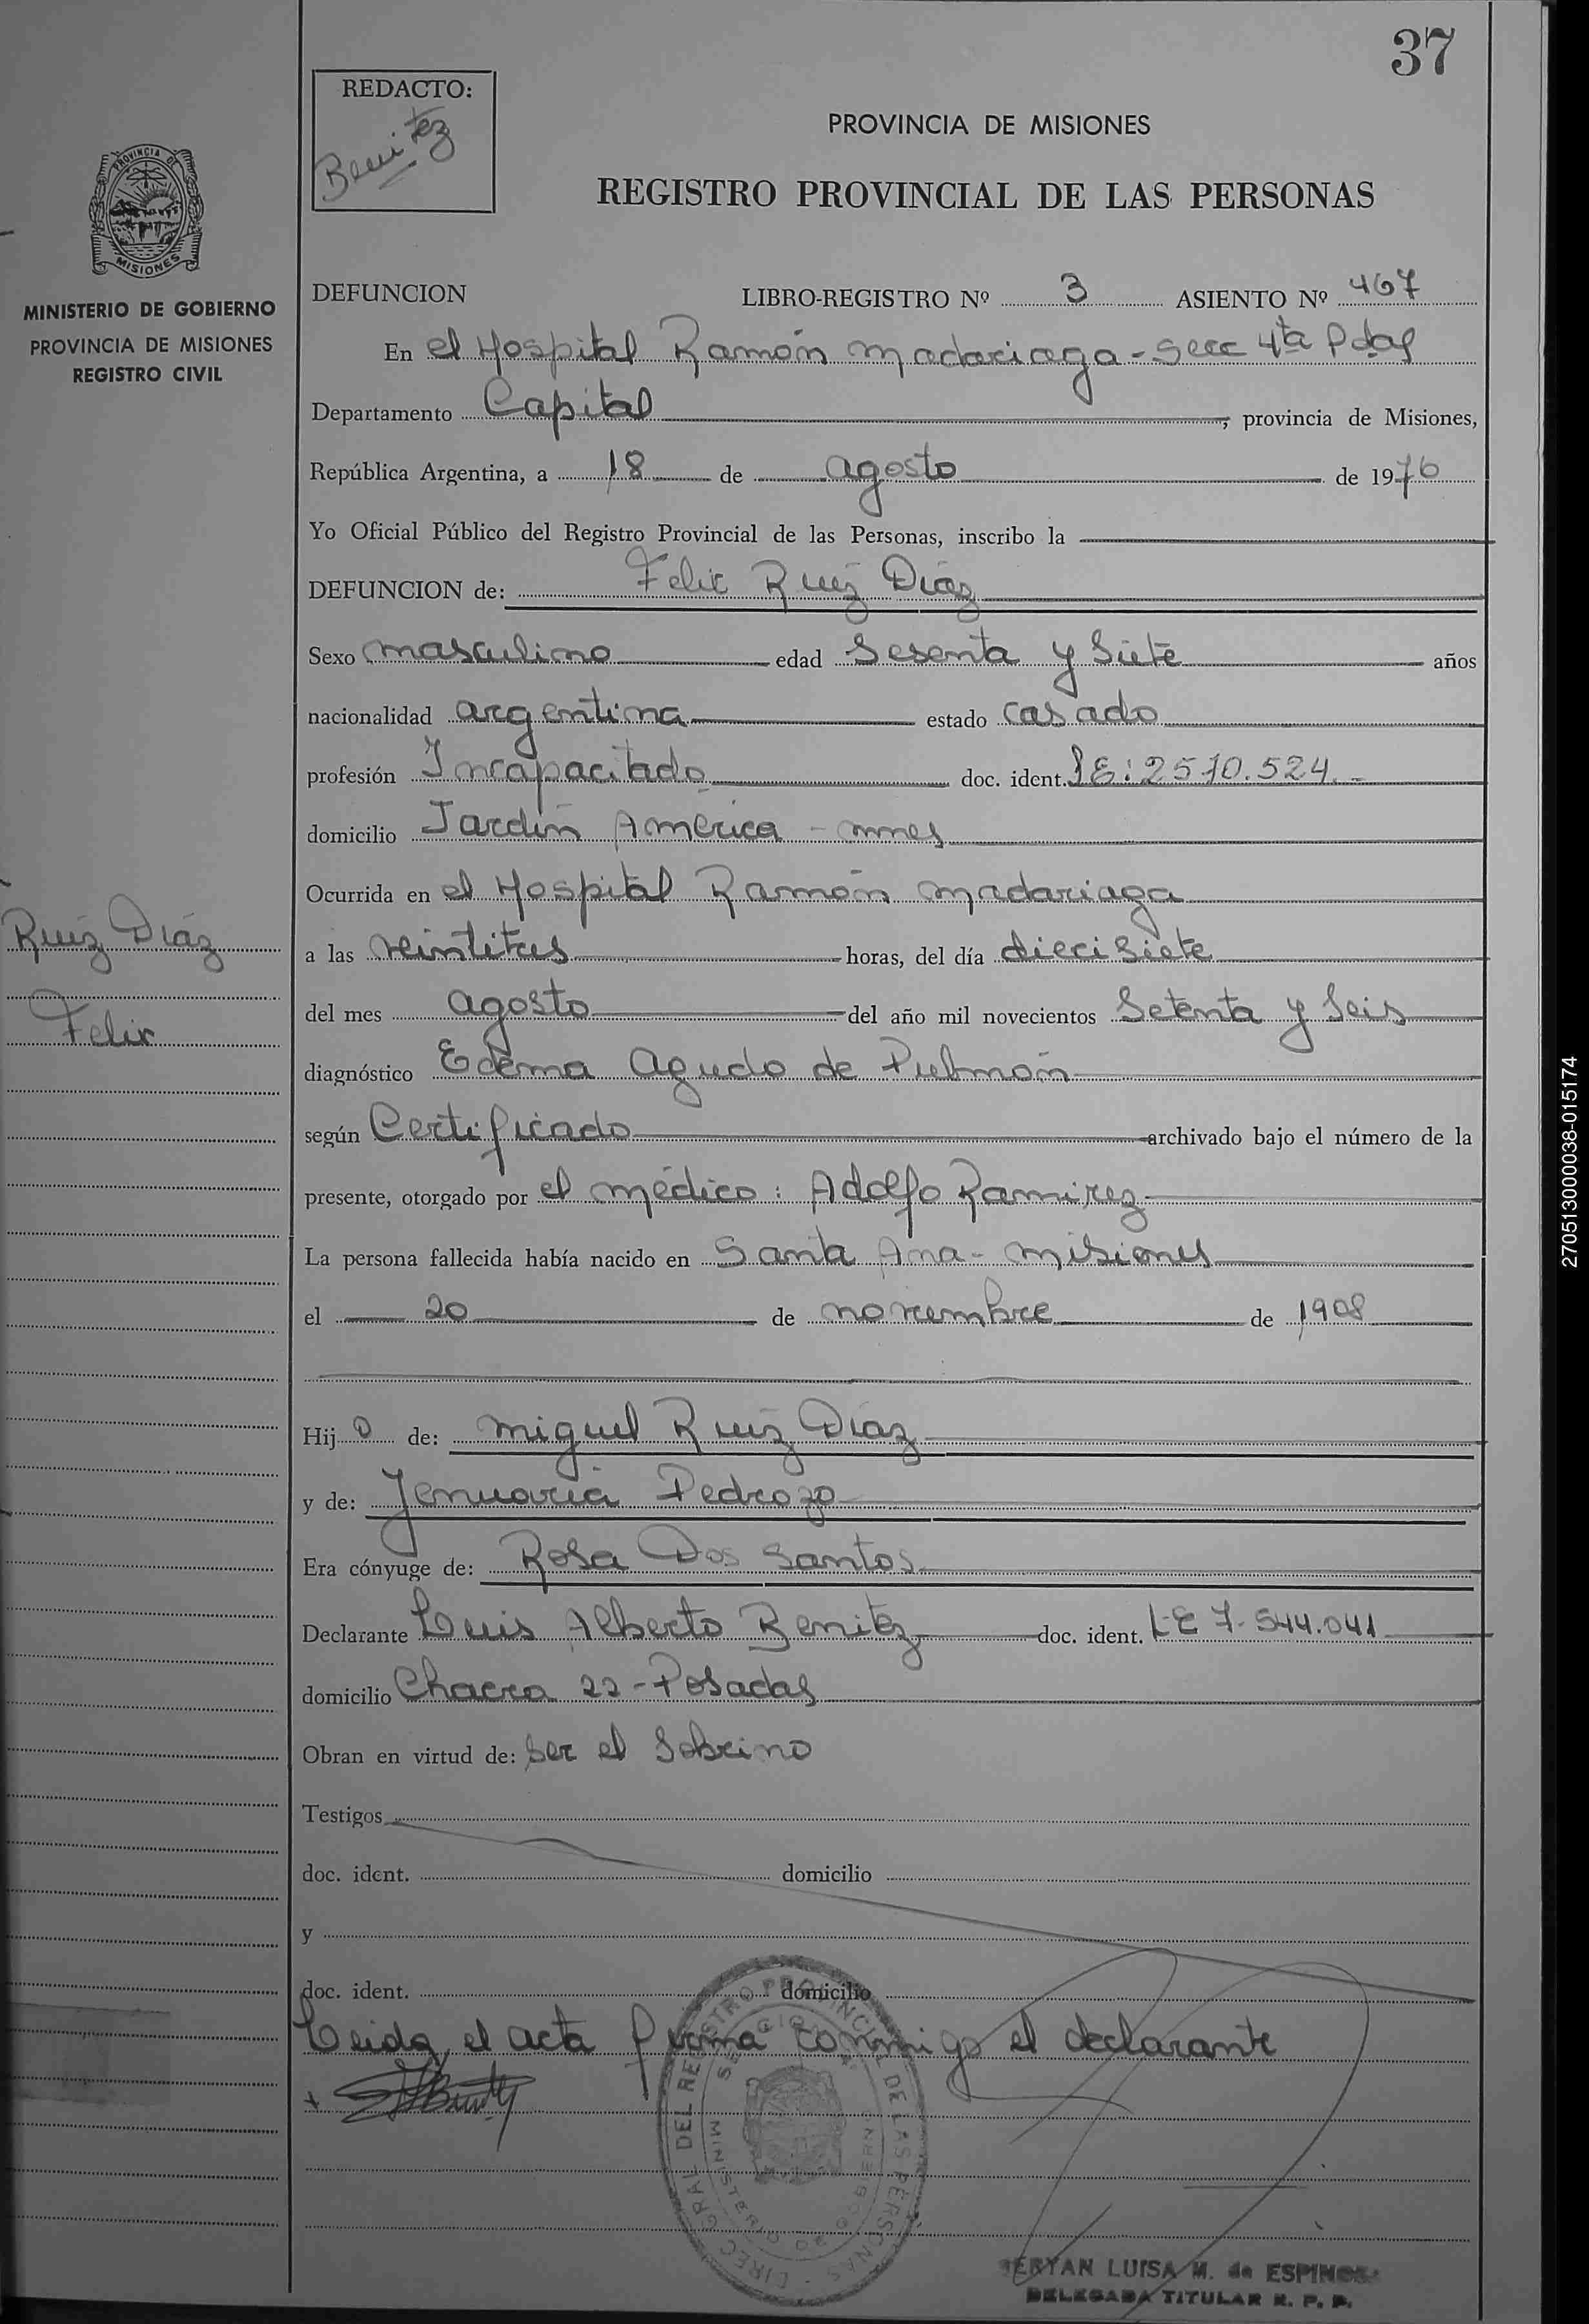 37
REDACTO:
Benitez
PROVINCIA DE MISIONES
REGISTRO PROVINCIAL DE LAS PERSONAS
PROVINCIA DE
MISIONES
MINISTERIO DE GOBIERNO
PROVINCIA DE MISIONES
REGISTRO CIVIL
DEFUNCION LIBRO-REGISTRO Nº 3 ASIENTO Nº 467
En el Hospital Ramón Madariaga - Secc 4ta Pdas
Departamento Capital, provincia de Misiones,
República Argentina, a 18 de agosto de 1976
Yo Oficial Público del Registro Provincial de las Personas, inscribo la
DEFUNCION de: Felix Ruiz Díaz
Sexo masculino edad Sesenta y Siete años
nacionalidad argentina estado casado
profesión Incapacitado doc. ident. LE: 2510.524.-
domicilio Jardín América - mnes
Ocurrida en el Hospital Ramón Madariaga
Ruiz Díaz
Felix
a las veintitres horas, del día diecisiete
del mes agosto del año mil novecientos Setenta y Seis
diagnóstico Edema Agudo de Pulmón
según Certificado archivado bajo el número de la
presente, otorgado por el médico: Adolfo Ramirez
La persona fallecida había nacido en Santa Ana - Misiones
el 20 de noviembre de 1908
Hijo de: Miguel Ruiz Díaz
y de: Jenuaria Pedrozo
Era cónyuge de: Rosa Dos Santos
Declarante Luis Alberto Benitez doc. ident. LE 7.544.041
domicilio Chacra 22 - Posadas
Obran en virtud de: Ser el Sobrino
Testigos
doc. ident. domicilio
y
doc. ident. domicilio
Leida, el acta firma conmigo el declarante
DIREC. GRAL. DEL REGISTRO PROVINCIAL DE LAS PERSONAS
MINISTERIO DE GOBIERNO
LUISA M. de ESPINOSA
DELEGADA TITULAR R. P. P.
27051300038-015174